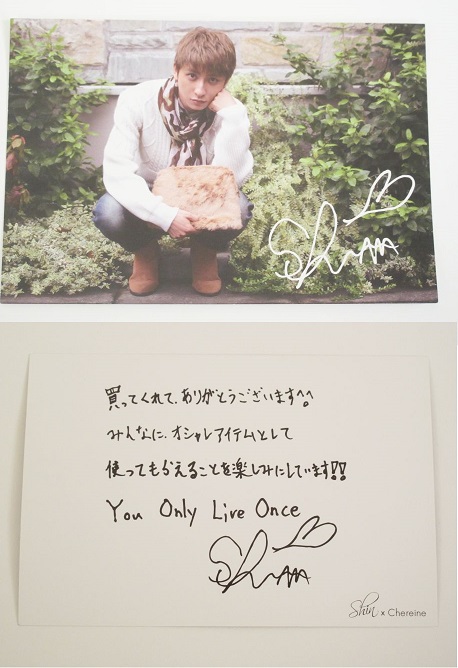 買ってくれて、ありがとうございます^^。
みんなに、オシャレアイテムとして
使ってもらえることを楽しみにしています!!
You Only Live Once
Shin x Chereine